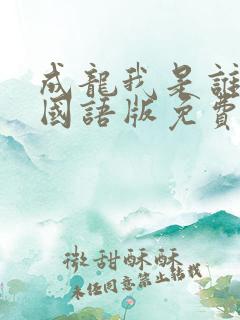 成龍我是誰
國語版免費
微甜酥酥
未任同意禁止轉載